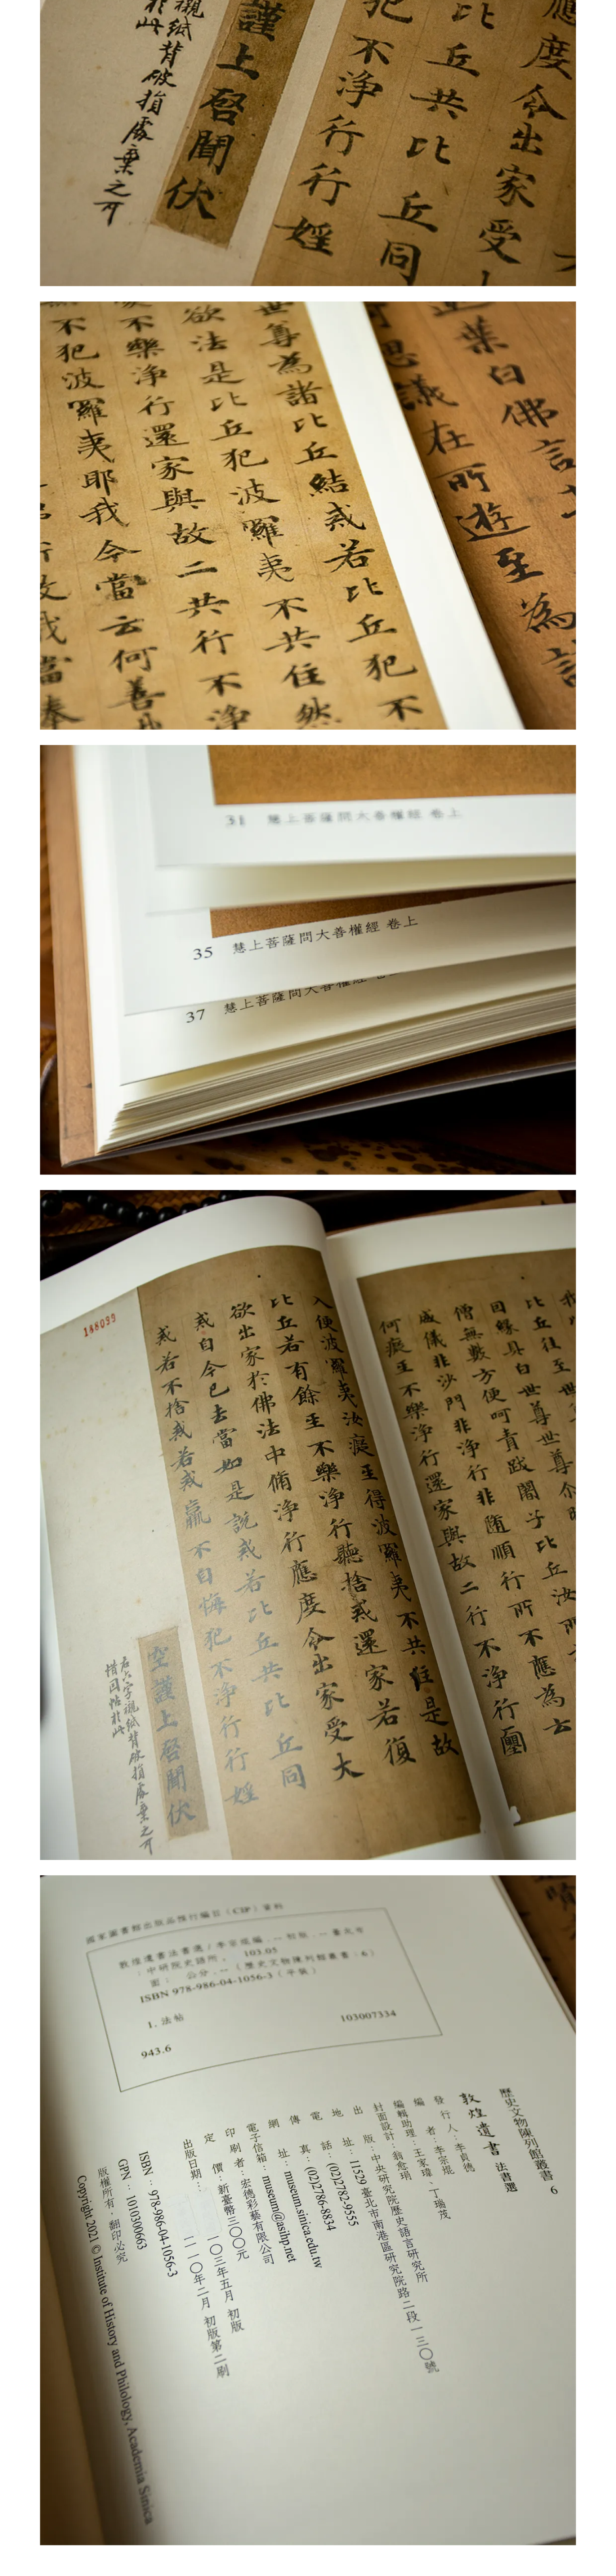 應度令出家受
比丘共比丘同
犯不淨行行婬
謹上啓聞伏
襯紙背破損處棄之可
於此
葉白佛言
思議在所遊至為
世尊為諸比丘結戒若比丘犯不
欲法是比丘犯波羅夷不共住然
不樂淨行還家與故二共行不淨
不犯波羅夷耶我今當云何善
31 慧上菩薩問大善權經 卷上
35 慧上菩薩問大善權經 卷上
37 慧上菩薩問大善權經 卷上
比丘往至世尊
回緣具白世尊世尊介時
僧無數方便呵責跋闍子比丘汝所
威儀非沙門非淨行非隨順行所不應為云
何癡至不樂淨行還家與故二行不淨行
入便波羅夷汝癡至得波羅夷不共住是故
比丘若有餘至不樂淨行聽捨戒還家若復
欲出家於佛法中脩淨行應度令出家受大
戒自今已去當如是說戒若比丘共比丘同
戒若不捨戒若戒羸不自悔犯不淨行行婬
188099
空謹上啓聞伏
右六字襯紙背破損處棄之可
惜因帖於此
國家圖書館出版品預行編目（CIP）資料
敦煌遺書法書選／李宗焜編．-- 初版．-- 臺北市
：中研院史語所， 103.05
面； 公分．--（歷史文物陳列館叢書；6）
ISBN 978-986-04-1056-3（平裝）
1. 法帖
943.6
103007334
歷史文物陳列館叢書 6
敦煌遺書 法書選
發行人：李貞德
編者：李宗焜
編輯助理：王家瑋、丁瑞茂
封面設計：翁愈琄
出版：中央研究院歷史語言研究所
地址：11529臺北市南港區研究院路二段一三〇號
電話：(02)2782-9555
傳真：(02)2786-8834
網址：museum.sinica.edu.tw
電子信箱：museum@asihp.net
印刷者：宏德彩藝有限公司
定價：新臺幣三〇〇元
出版日期：一〇三年五月 初版
一一〇年二月 初版第二刷
ISBN：978-986-04-1056-3
GPN：1010300663
版權所有．翻印必究
Copyright 2021 © Institute of History and Philology, Academia Sinica